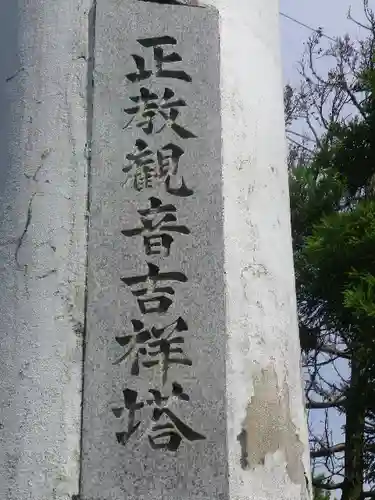 正教観音吉祥塔